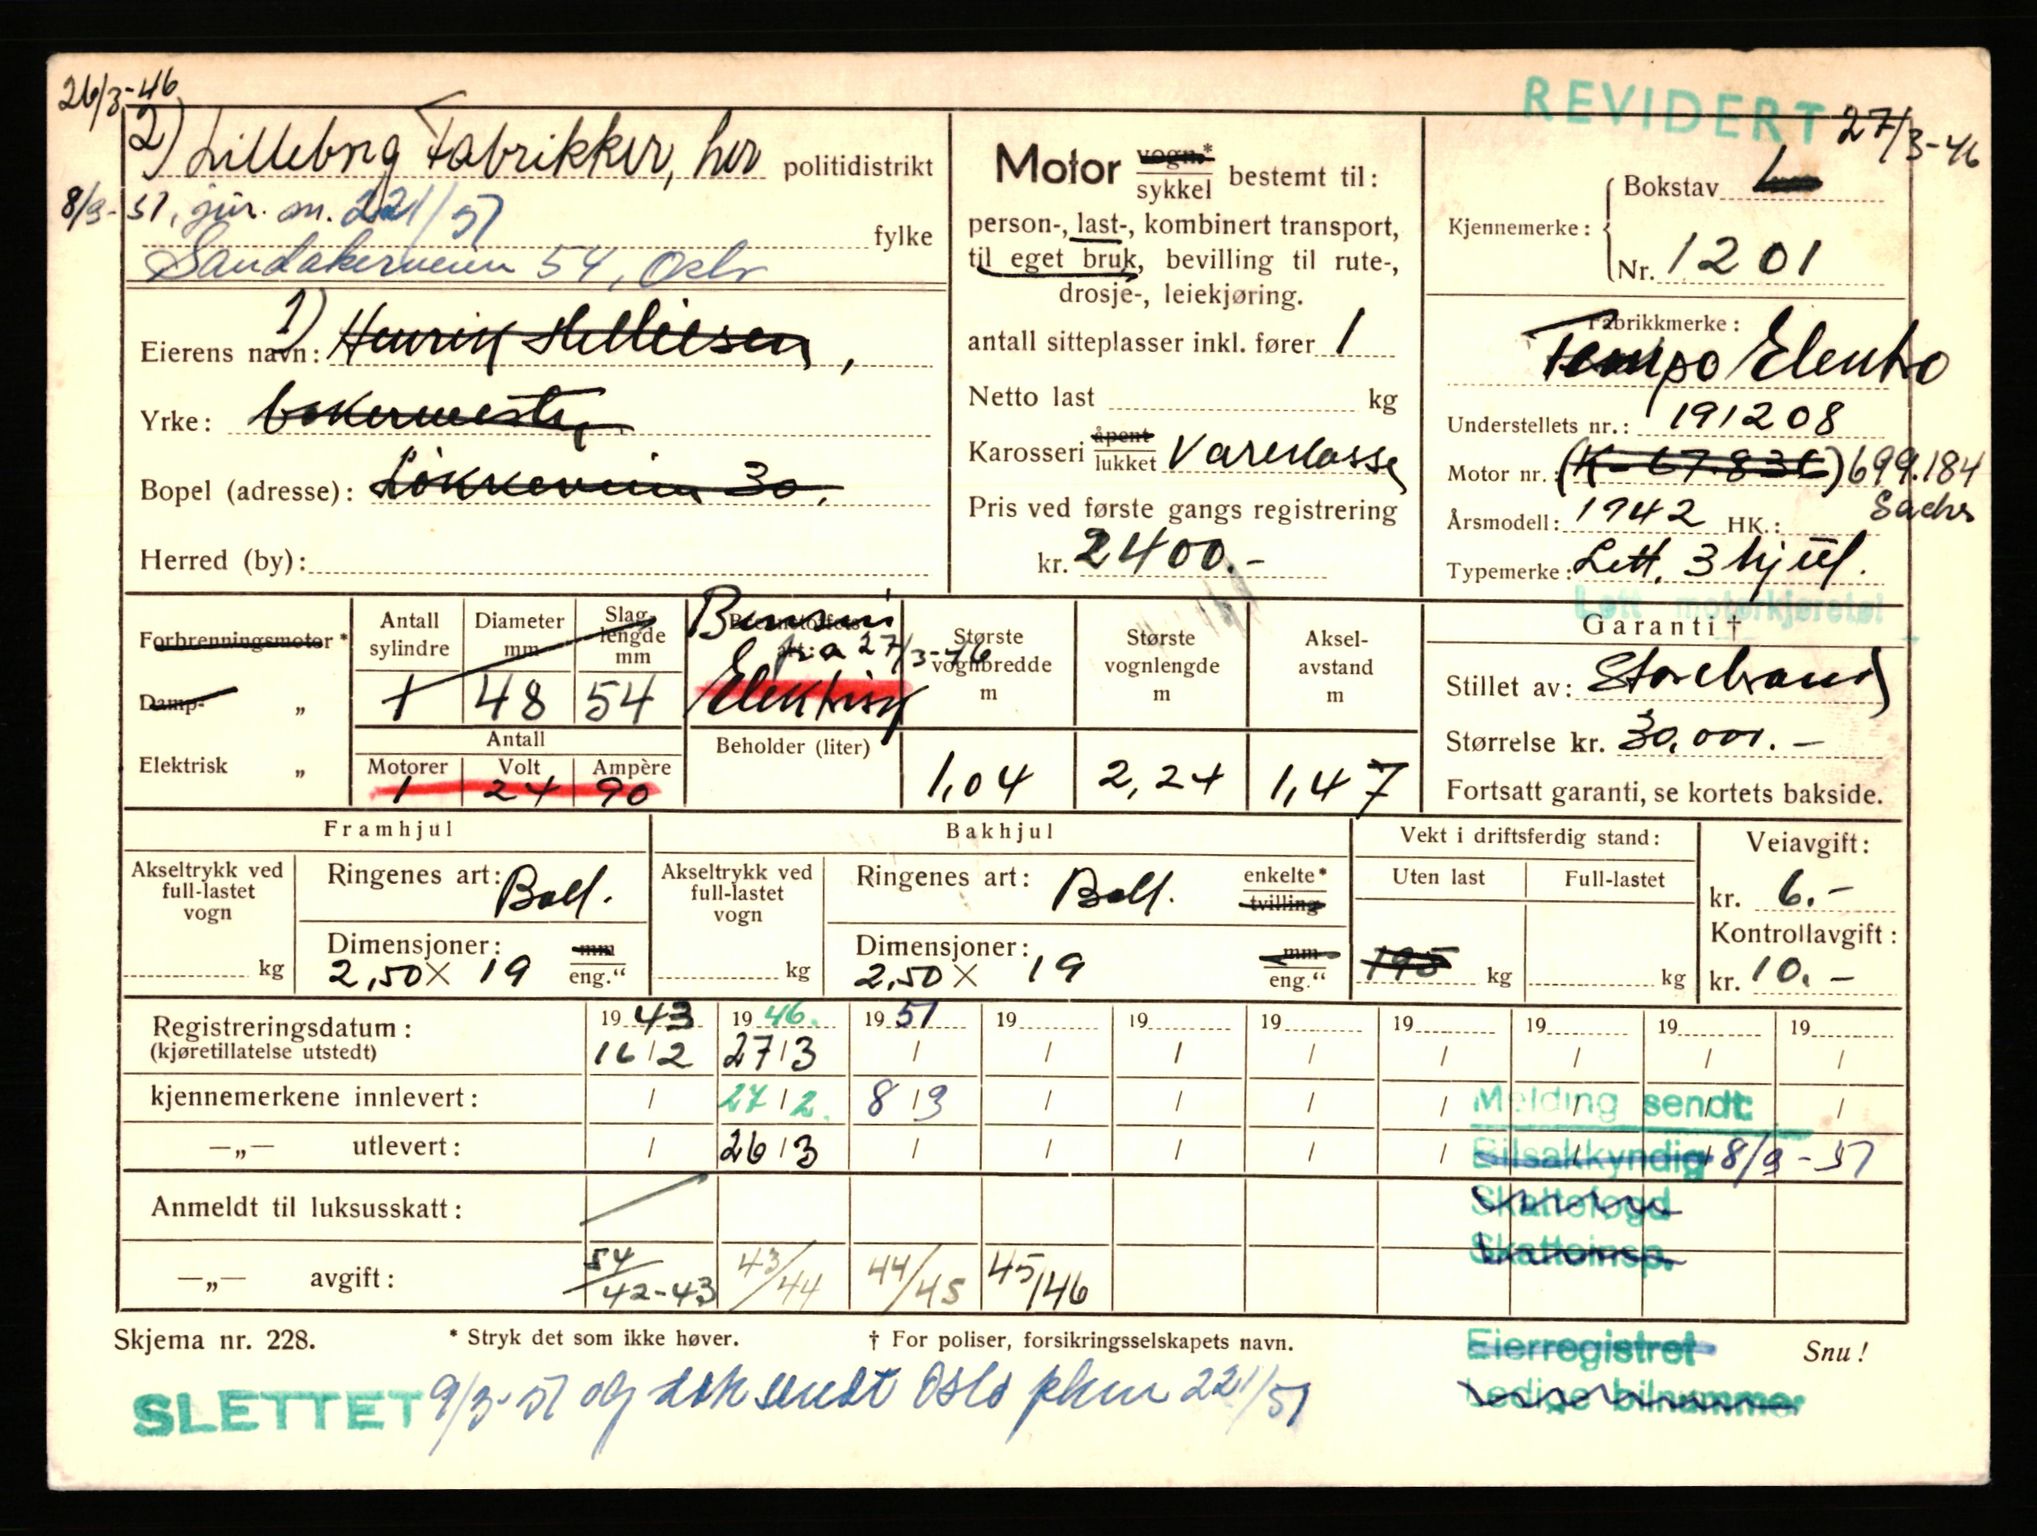 26/3-46
REVIDERT 27/3-46
2) Lilleborg Fabrikker, her politidistrikt
8/3-51, jnr. 221/51
fylke
Sandakerveien 54, Oslo
1)
Eierens navn: Henrik ,
Yrke: bokermester
Bopel (adresse): Løkkeveien 30.
Herred (by):
Motor vogn* sykkel bestemt til:
person-, last-, kombinert transport,
til eget bruk, bevilling til rute-,
drosje-, leiekjøring.
antall sitteplasser inkl. fører 1
Netto last kg
Karosseri åpent lukket Varekasse
Pris ved første gangs registrering
kr. 2400.-
Kjennemerke: Bokstav L
Nr. 1201
Fabrikkmerke:
Tempo Elentro
Understellets nr.: 191208
Motor nr.: (K-67.836) 699.184
Sachs
Årsmodell: 1942 HK.:
Typemerke: Lett. 3 hjul.
Lett motorkjøretøi
Forbrenningsmotor *
Damp- „
Elektrisk „
Antall sylindre Diameter mm Slag- lengde mm
1 48 54
Antall
Motorer Volt Ampère
1 24 90
Bensin
Brennstoffets art:
fra 27/3-46
Elektrisk
Beholder (liter)
Største vognbredde m
1,04
Største vognlengde m
2,24
Aksel- avstand m
1,47
Garanti †
Stillet av: Storebrand
Størrelse kr. 30.000.-
Fortsatt garanti, se kortets bakside.
Framhjul
Akseltrykk ved full-lastet vogn
kg
Ringenes art: Ball.
Dimensjoner: mm
2,50 x 19 eng.“
Bakhjul
Akseltrykk ved full-lastet vogn
kg
Ringenes art: Ball. enkelte* tvilling
Dimensjoner: mm
2,50 x 19 eng.“
Vekt i driftsferdig stand:
Uten last Full-lastet
195 kg kg
Veiavgift:
kr. 6.-
Kontrollavgift:
kr. 10.-
Registreringsdatum: 1943 1946. 1951 19 19 19 19 19 19 19
(kjøretillatelse utstedt) 16/2 27/3 / / / / / / / /
kjennemerkene innlevert: / 27/2. 8/3 / / / / / / /
—„— utlevert: / 26/3 / / / / / / / /
Melding sendt:
Bilsakkyndig 8/3-51
Skattefogd
Skatteinsp.
Eierregistret
Ledige bilnummer
Anmeldt til luksusskatt:
—„— avgift: 54/42-43 43/44 44/45 45/46
Skjema nr. 228. * Stryk det som ikke høver. † For poliser, forsikringsselskapets navn. Snu!
SLETTET 9/3-51 og dok sendt Oslo 221/51